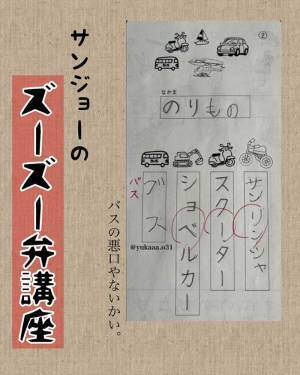 サンジョーの
ズーズー弁講座
②
なかま
のりもの
サンリンシャ
スクーター
ショベルカー
ブス
バス
@yukaaa.o31
バスの悪口やないかい。